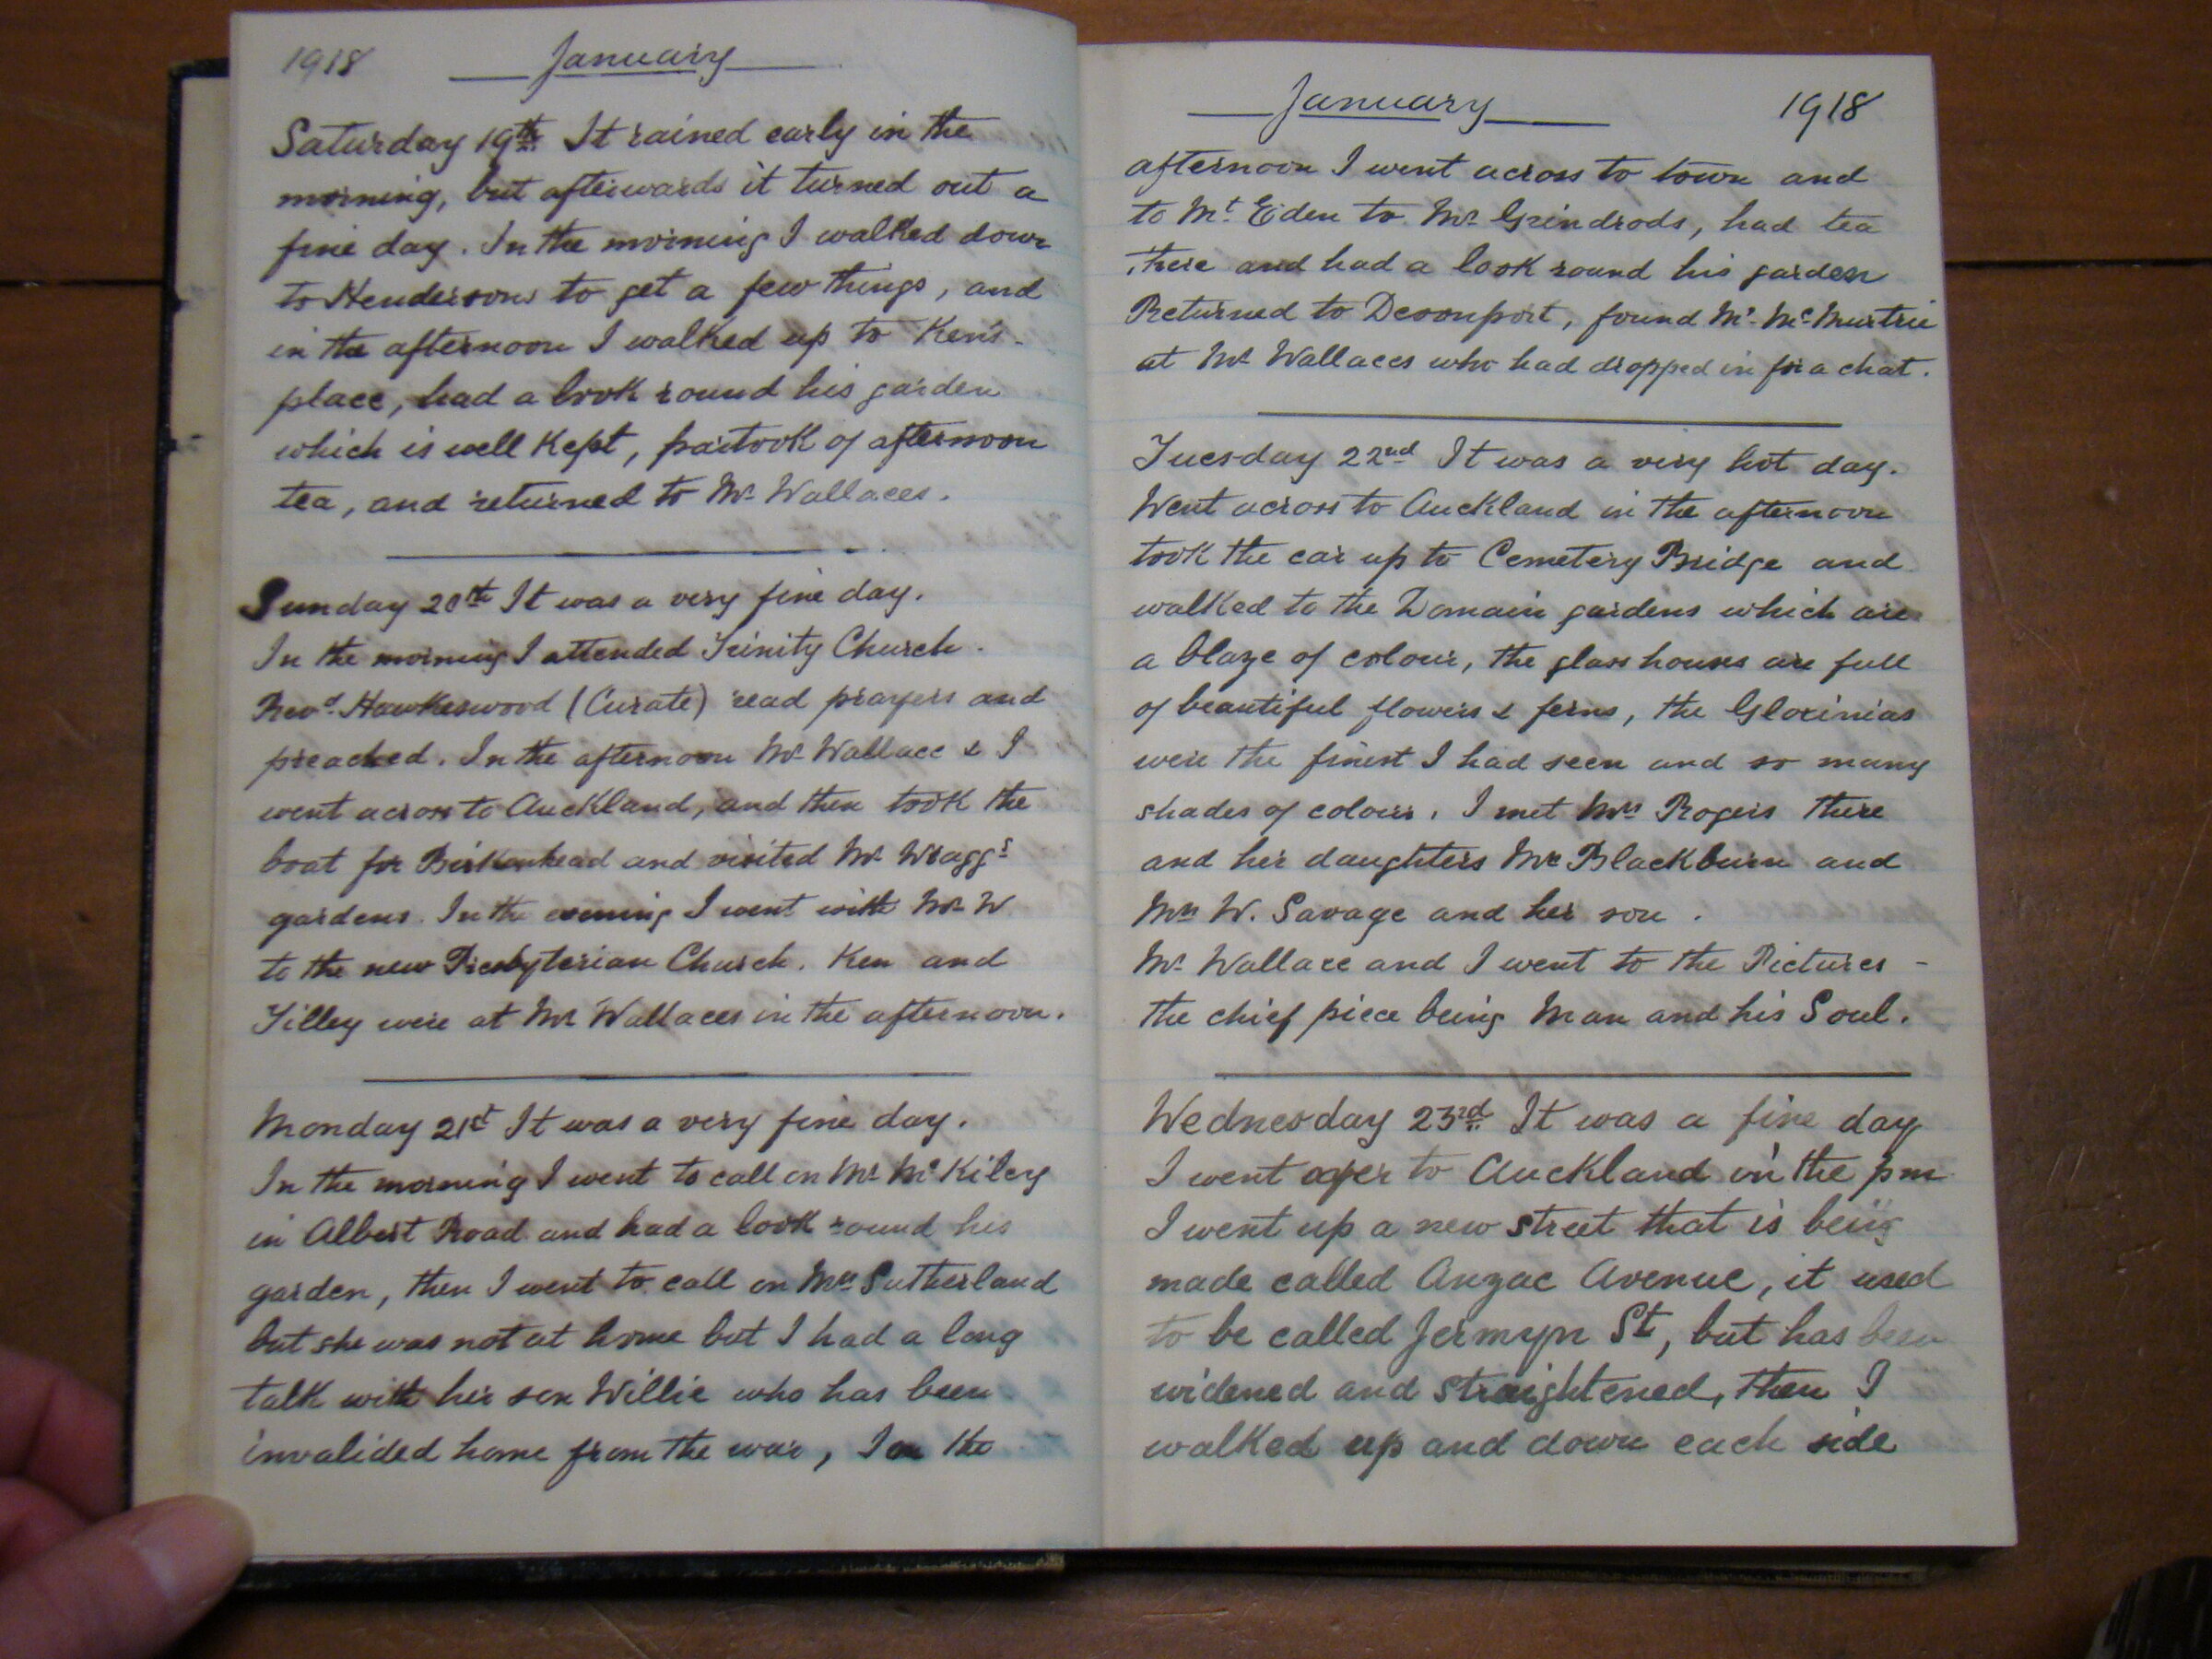 1918 January
Saturday 19th It rained early in the
morning, but afterwards it turned out a
fine day. In the morning I walked down
to Hendersons to get a few things, and
in the afternoon I walked up to Ken's
place, had a look round his garden
which is well kept, partook of afternoon
tea, and returned to Mr Wallaces.
Sunday 20th It was a very fine day.
In the morning I attended Trinity Church.
Revd. Hawkeswood (Curate) read prayers and
preached. In the afternoon Mr Wallace & I
went across to Auckland, and then took the
boat for Birkenhead and visited Mr Wraggs
gardens. In the evening I went with Mr W
to the new Presbyterian Church. Ken and
Tilley were at Mr Wallaces in the afternoon.
Monday 21st It was a very fine day.
In the morning I went to call on Mr McKiley
in Albert Road and had a look round his
garden, then I went to call on Mrs Sutherland
but she was not at home but I had a long
talk with her son Willie who has been
invalided home from the war, In the
January 1918
afternoon I went across to town and
to Mt. Eden to Mr Grindrods, had tea
there and had a look round his garden
Returned to Devonport, found Mr McMurtrie
at Mr Wallaces who had dropped in for a chat.
Tuesday 22nd It was a very hot day.
Went across to Auckland in the afternoon
took the car up to Cemetery Bridge and
walked to the Domain gardens which are
a blaze of colour, the glass houses are full
of beautiful flowers & ferns, the Gloxinias
were the finest I had seen and so many
shades of colour. I met Mrs Rogers there
and her daughters Mrs Blackburn and
Mrs W. Savage and her son.
Mr Wallace and I went to the Pictures -
the chief piece being Man and his Soul.
Wednesday 23rd It was a fine day
I went over to Auckland in the pm
I went up a new street that is being
made called Anzac Avenue, it used
to be called Jermyn St, but has been
widened and straightened, then I
walked up and down each side